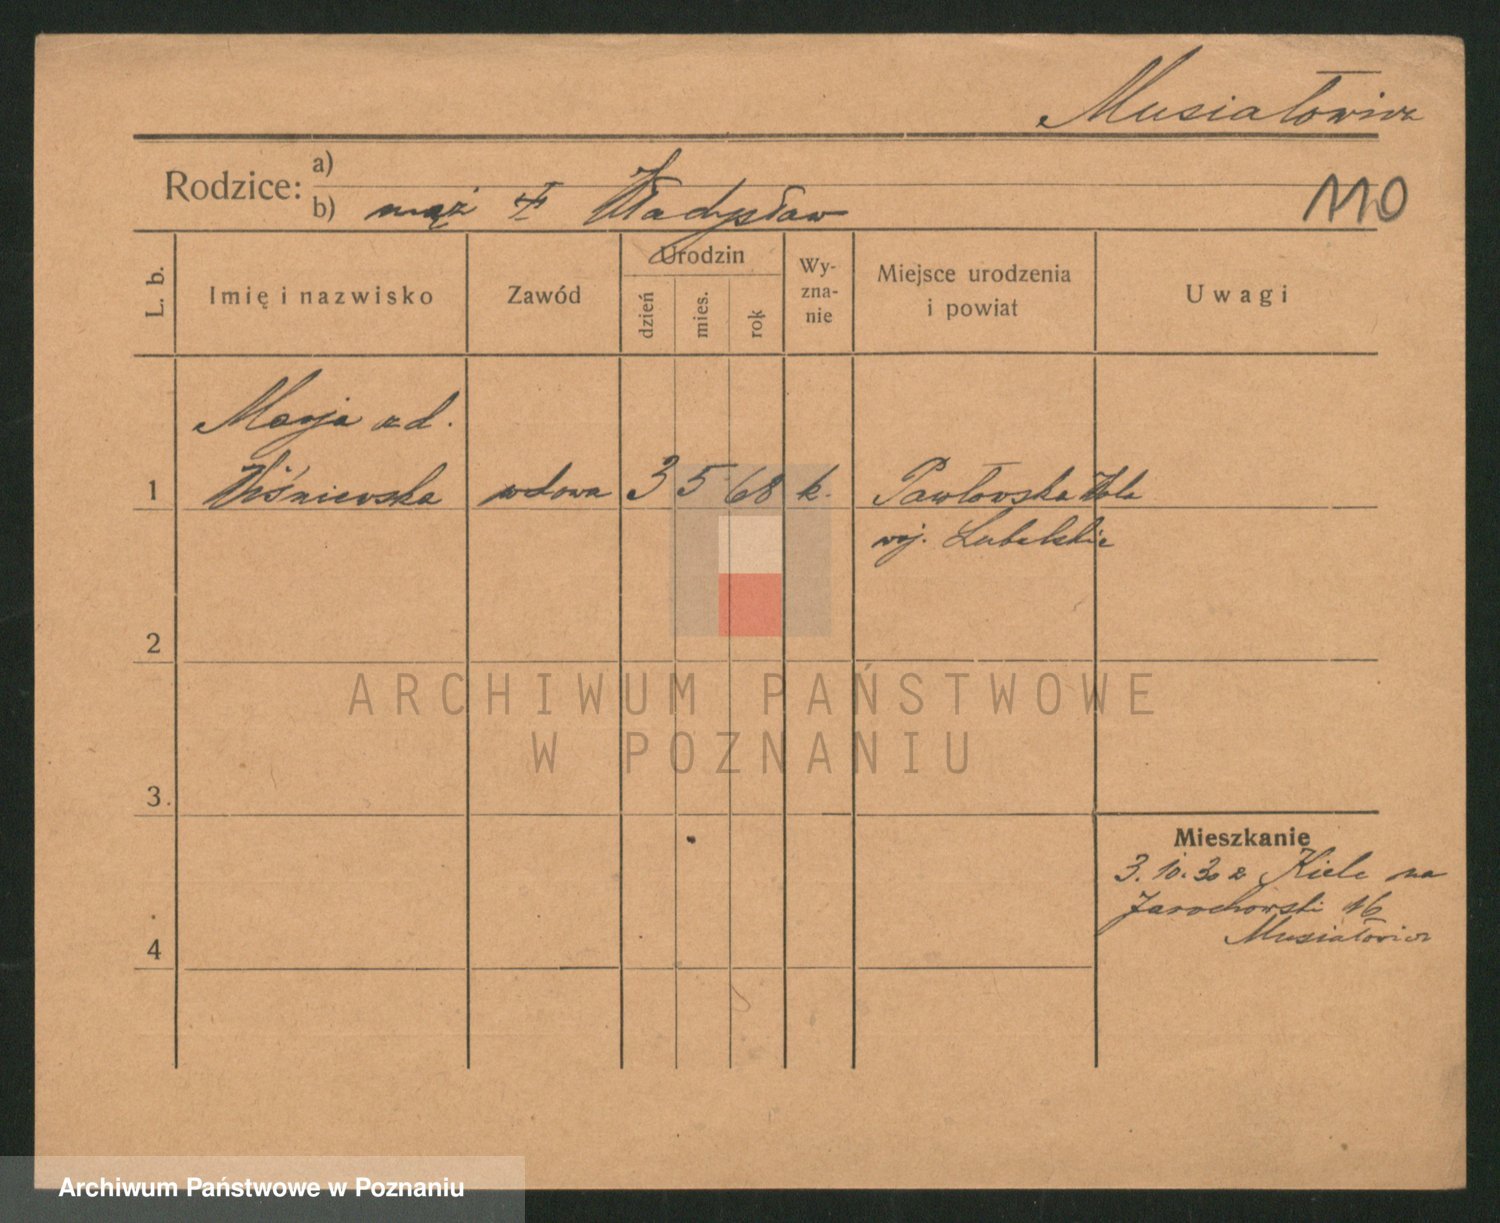 Musiałowicz
Rodzice: a)
b) mąż † Władysław
110
L. b.
Imię i nazwisko
Zawód
Urodzin
dzień
mies.
rok
Wy-
zna-
nie
Miejsce urodzenia
i powiat
Uwagi
Marja zd.
1 Wiśniewska wdowa 3 5 68 k. Pawłowska Wola
woj. Lubelskie
2
ARCHIWUM PAŃSTWOWE
W POZNANIU
3.
Mieszkanie
3. 10. 30 z Kielc na
Jarochowski 16
Musiałowicz
4
Archiwum Państwowe w Poznaniu